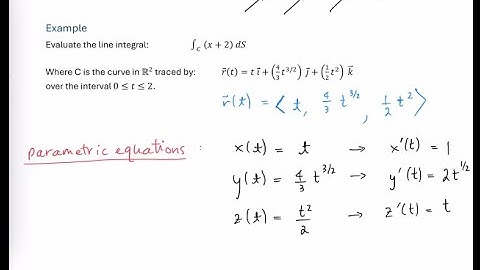 Example
Evaluate the line integral: ∫_C (x + 2) dS
Where C is the curve in ℝ² traced by: r⃗(t) = t i⃗ + (4/3 t^{3/2}) j⃗ + (1/2 t²) k⃗
over the interval 0 ≤ t ≤ 2.
r⃗(t) = ⟨ t, 4/3 t^{3/2}, 1/2 t² ⟩
parametric equations : x(t) = t → x'(t) = 1
y(t) = 4/3 t^{3/2} → y'(t) = 2t^{1/2}
z(t) = t²/2 → z'(t) = t